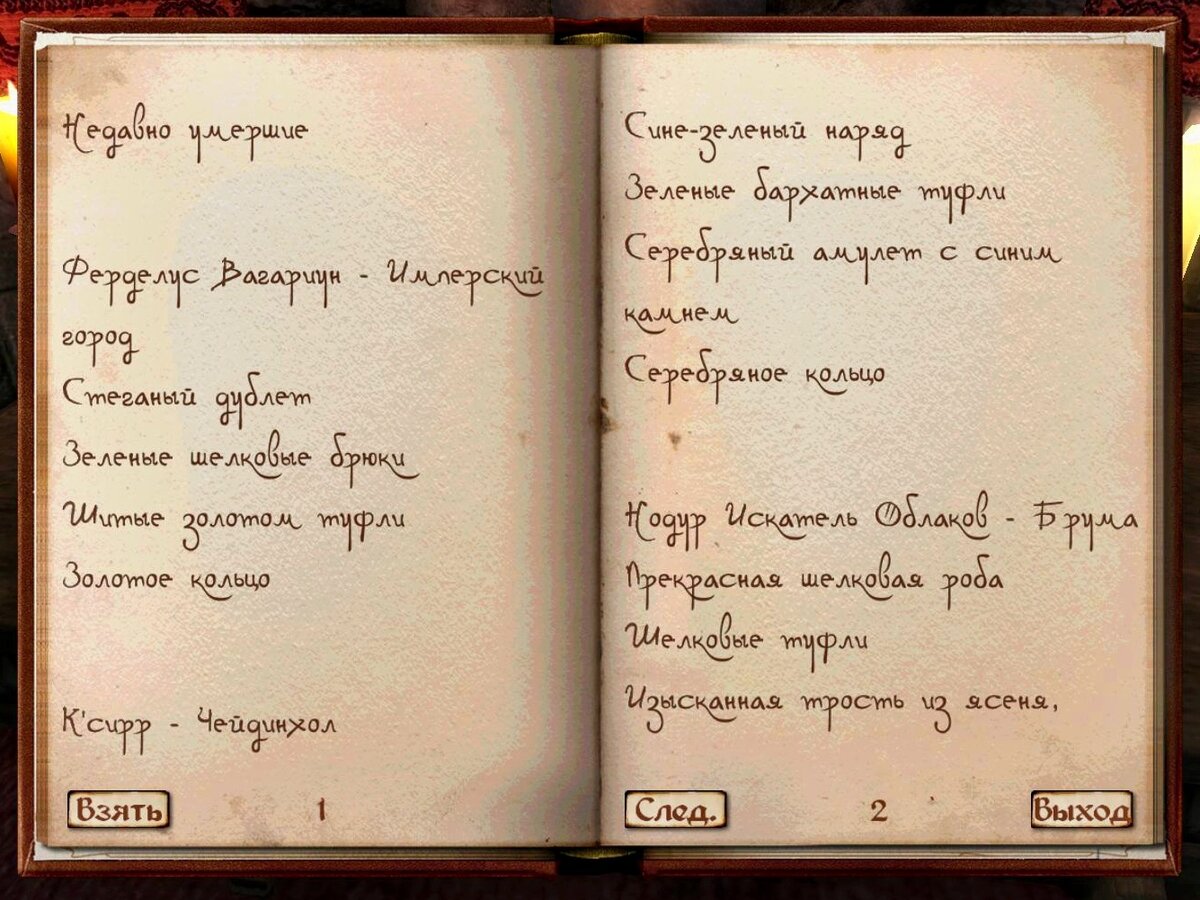 Недавно умершие
Ферделус Вагариун - Имперский
город
Стеганый дублет
Зеленые шелковые брюки
Шитые золотом туфли
Золотое кольцо
К'сирр - Чейдинхол
Взять
1
Сине-зеленый наряд
Зеленые бархатные туфли
Серебряный амулет с синим
камнем
Серебряное кольцо
Нодур Искатель Облаков - Брума
Прекрасная шелковая роба
Шелковые туфли
Изысканная трость из ясеня,
След.
2
Выход